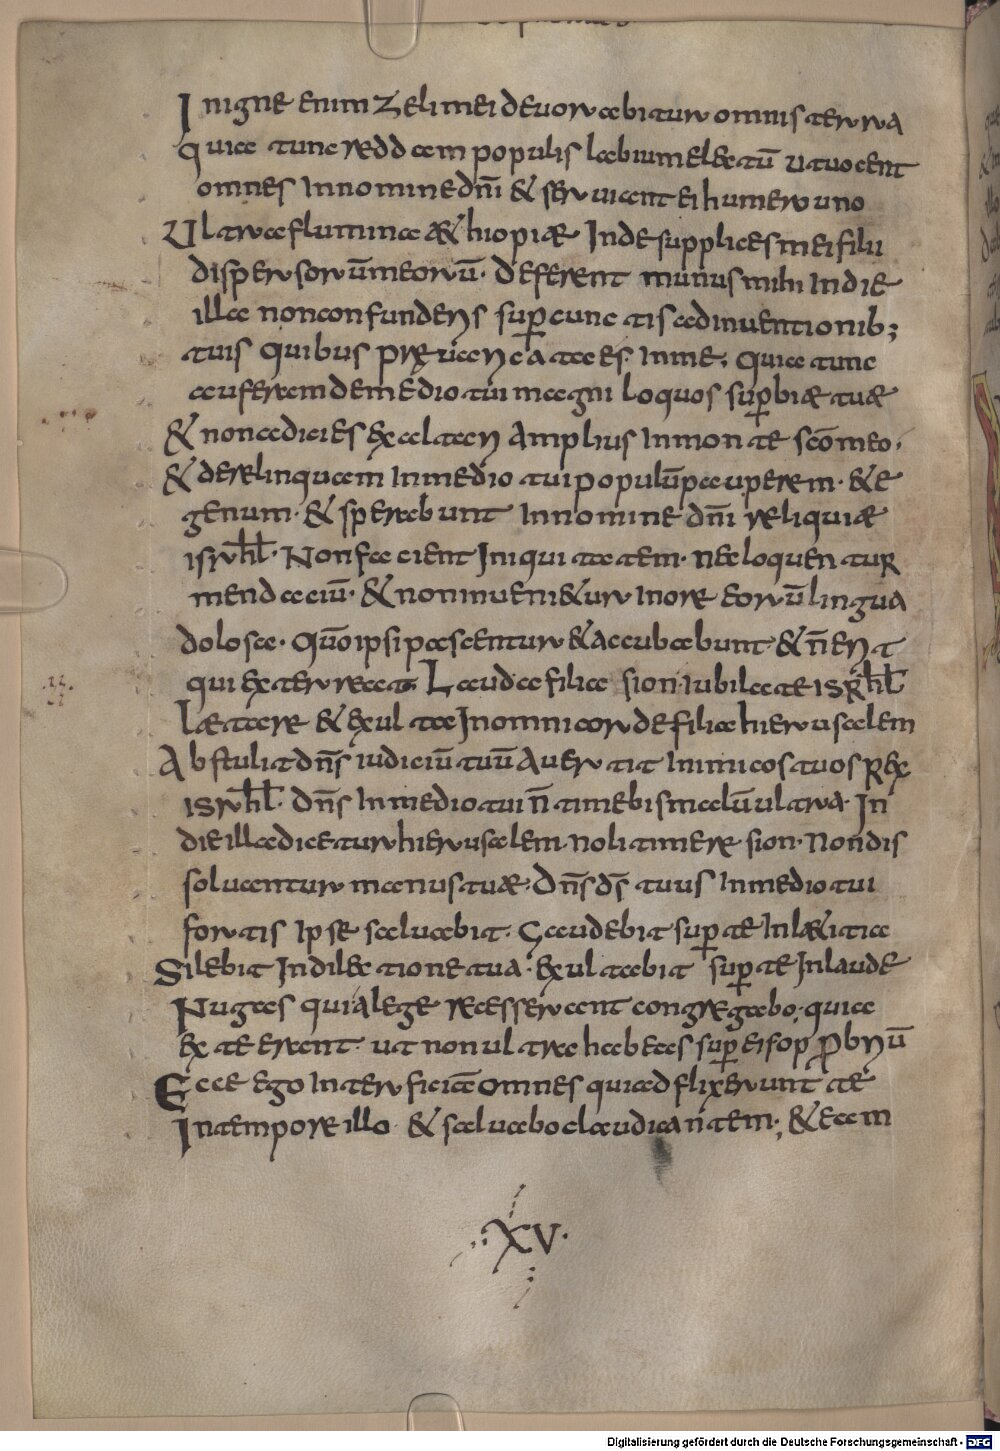 In igne enim zeli mei devorabitur omnis terra
quia tunc reddam populis labium electū ut vocent
omnes In nomine dn̄i & serviant ei humero uno
Ultra flumina æthiopiæ Inde supplices mei filii
dispersorūmeorū· deferent munus mihi In die
illa non confunderis sup̄ cunctis adinventionib;
tuis quibus prevaricata es In me; quia tunc
auferam de medio tui magniloquos sup̄biæ tuæ
& non adicies exaltari Amplius In monte sc̄o meo·
& derelinquam In medio tui populūpauperem· & e
genum· & sperabunt In nomine dn̄i reliquiæ
isrħl· Non facient Iniquitatem· nec loquentur
mendaciū· & non invenietur In ore eorū lingua
dolosa· Qūo ipsi pascentur & accubabunt & n̄ erit
qui exterreat Lauda filia sion iubilate isrħl
Lætare & exulta In omni corde filia hierusalem
Abstulit dn̄s iudiciū tuū Avertit Inimicos tuos rex
isrħl· Dn̄s In medio tui n̄ timebis malū ultra· In
die illa dicetur hierusalem· noli timere sion· Non dis
solvantur manus tuæ· Dn̄s d̄s tuus In medio tui
fortis Ipse salvabit· Gaudebit sup̄ te In lætitia
Silebit In dilectione tua· exultabit sup̄ te In laude
Nugas qui a lege recesserant congregabo· quia
ex te erant· ut non ultra habeas sup̄ eis opprobriū
Ecce ego Interficiā omnes qui adflixerunt te
In tempore illo· & salvabo claudicantem; & eam
·XV·